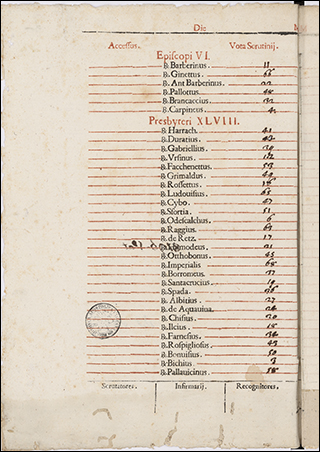 Die
Accessus. Vota Scrutinij.
Episcopi VI.
B. Barberinus. 11
B. Ginettus.
B. Ant Barberinus. 22
B. Pallottus. 48
B. Brancaccius. 32
B. Carpineus.
Presbyteri XLVIII.
B. Harrach. 41
B. Duratius.
B. Gabriellius.
B. Vrsinus.
B. Facchenettus. 53
B. Grimaldus. 44
B. Rossettus.
B. Ludouisius. 65
B. Cybo. 47
B. Sfortia. 51
B. Odescalchus. 6
B. Raggius. 65
B. de Retz. 17
B. Homodeus. 21
B. Otthobonus. 45
B. Imperialis
B. Borromeus. 37
B. Santacrucius. 10
B. Spada.
B. Albitius. 27
B. de Aquauiua. 24
B. Chisius. 20
B. Ilcius. 18
B. Farnesius. 34
B. Rospigliosus. 43
B. Bonuisius. 50
B. Bichius 3
B. Pallauicinus. 58
Scrutatores. Infirmarij. Recognitores.